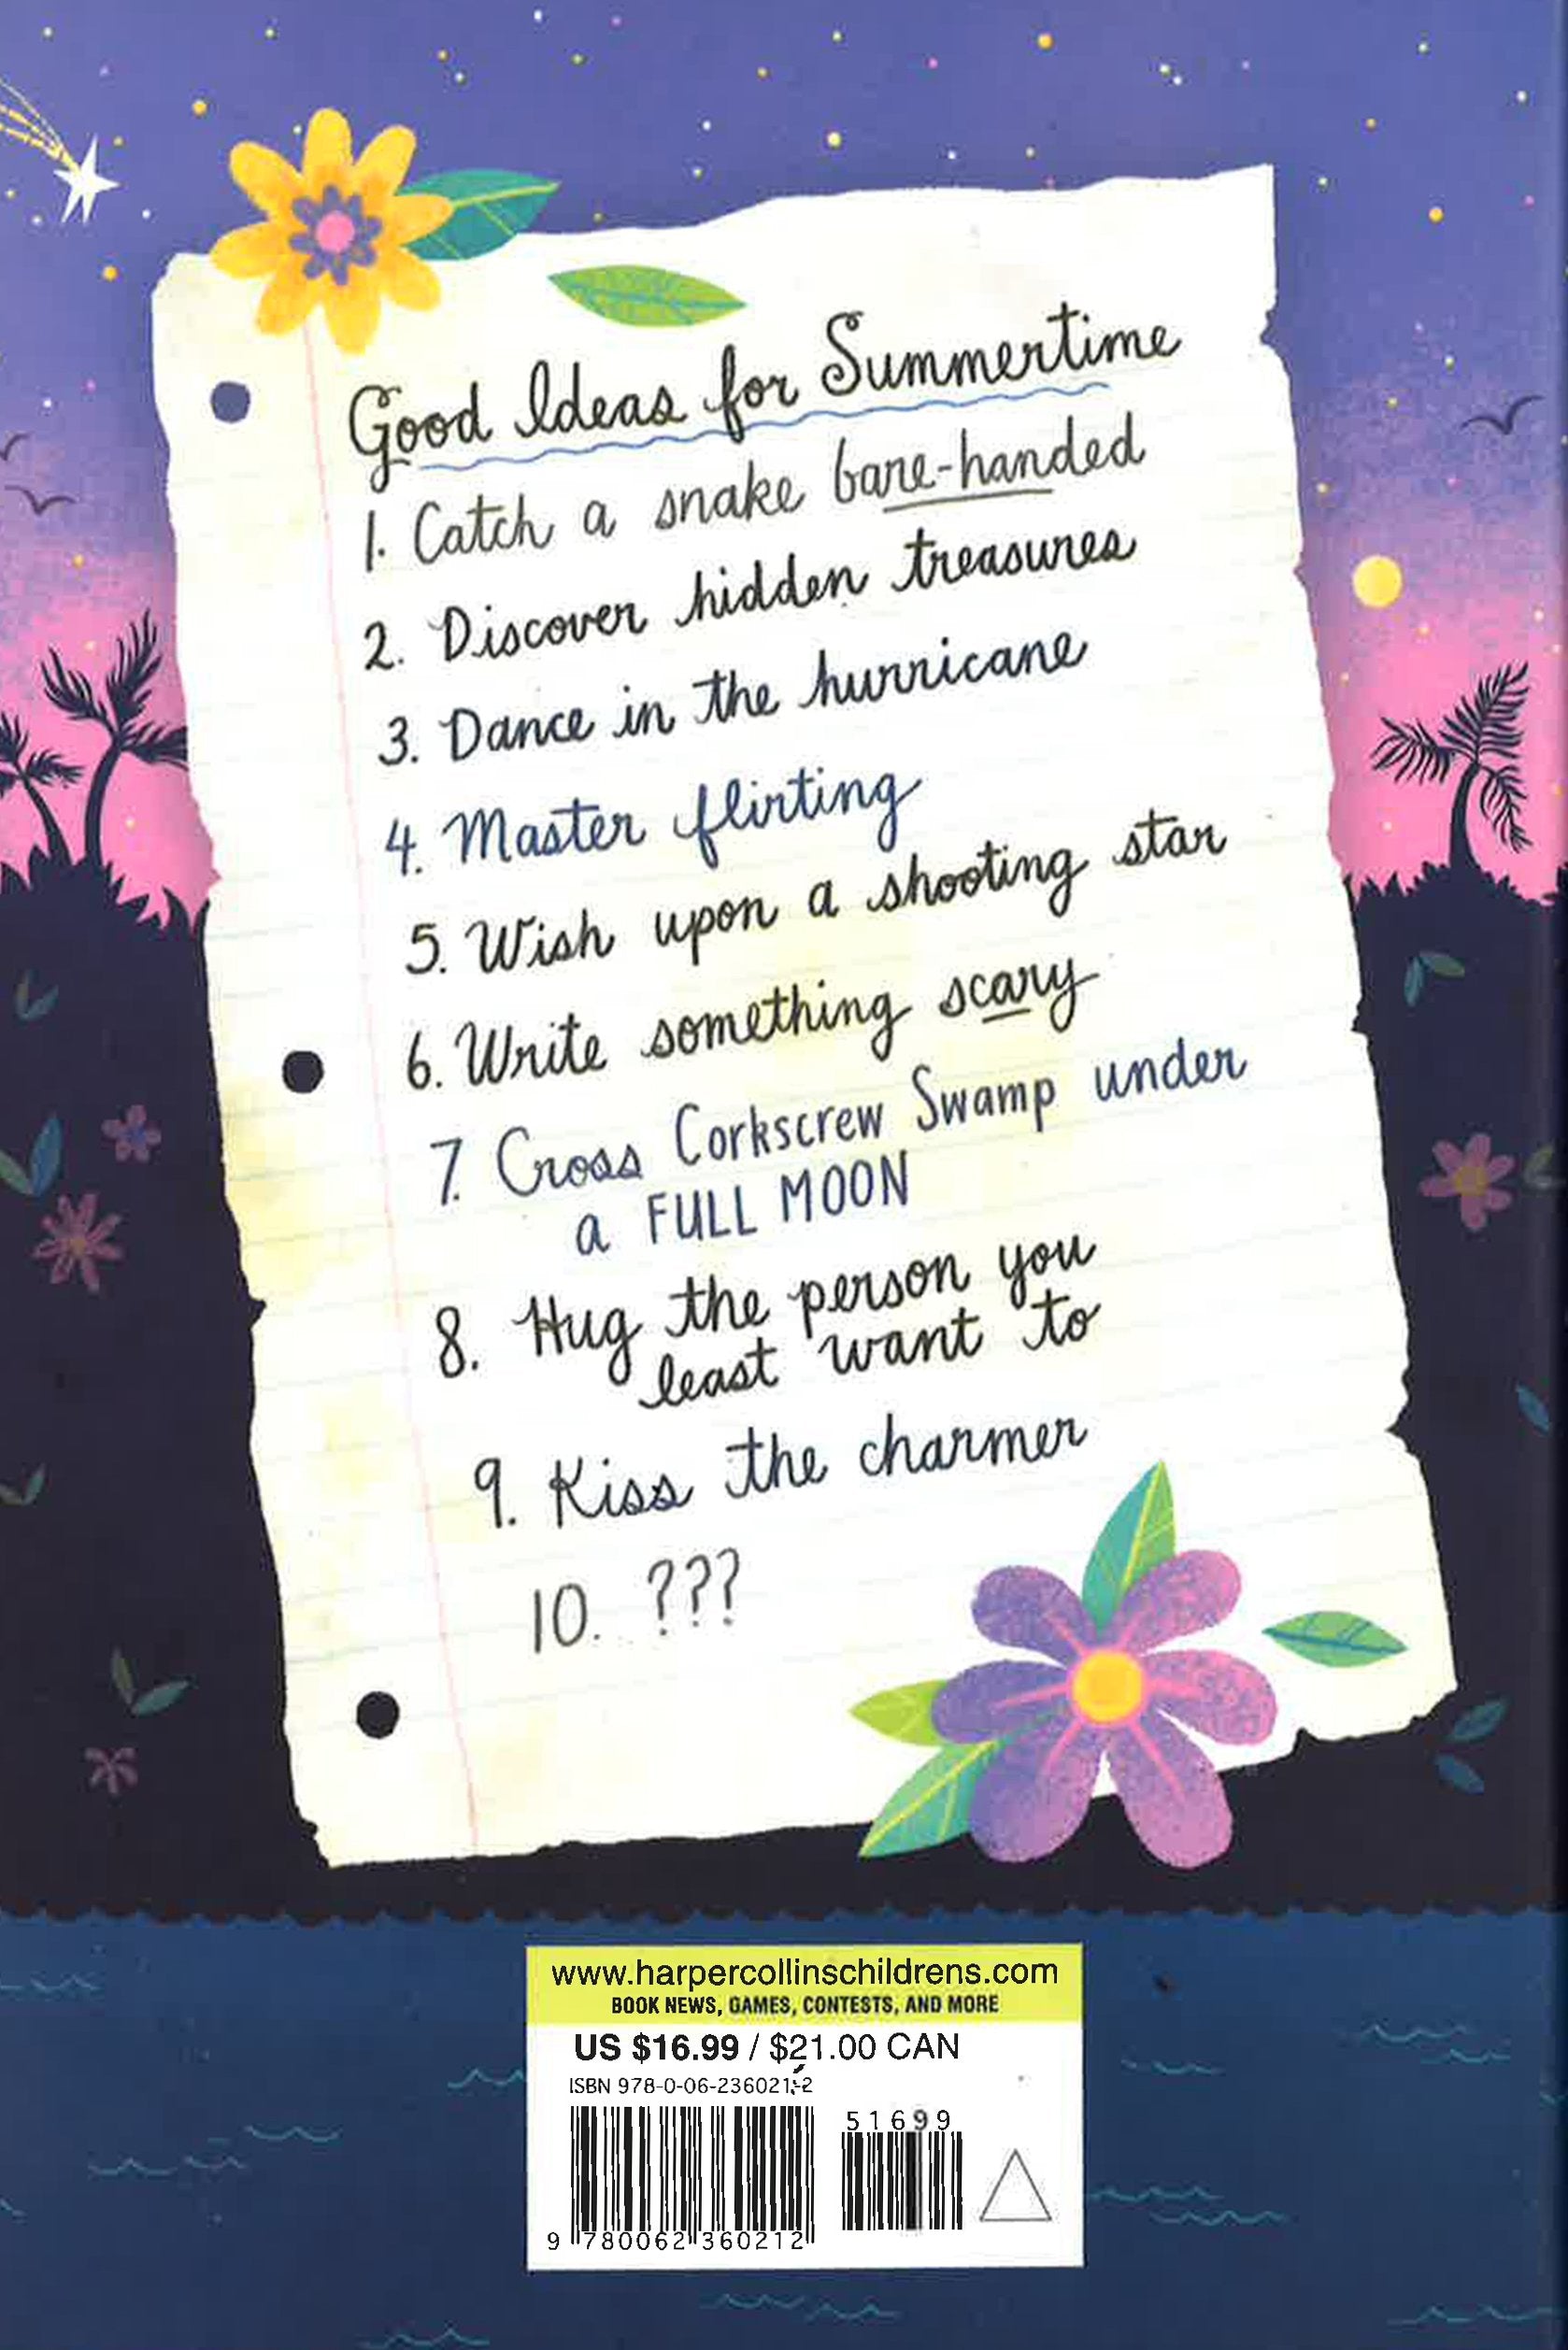 Good Ideas for Summertime
1. Catch a snake bare-handed
2. Discover hidden treasures
3. Dance in the hurricane
4. Master flirting
5. Wish upon a shooting star
6. Write something scary
7. Cross Corkscrew Swamp under
a FULL MOON
8. Hug the person you
least want to
9. Kiss the charmer
10. ???
www.harpercollinschildrens.com
BOOK NEWS, GAMES, CONTESTS, AND MORE
US $16.99 / $21.00 CAN
ISBN 978-0-06-236021-2
51699
9 780062 360212